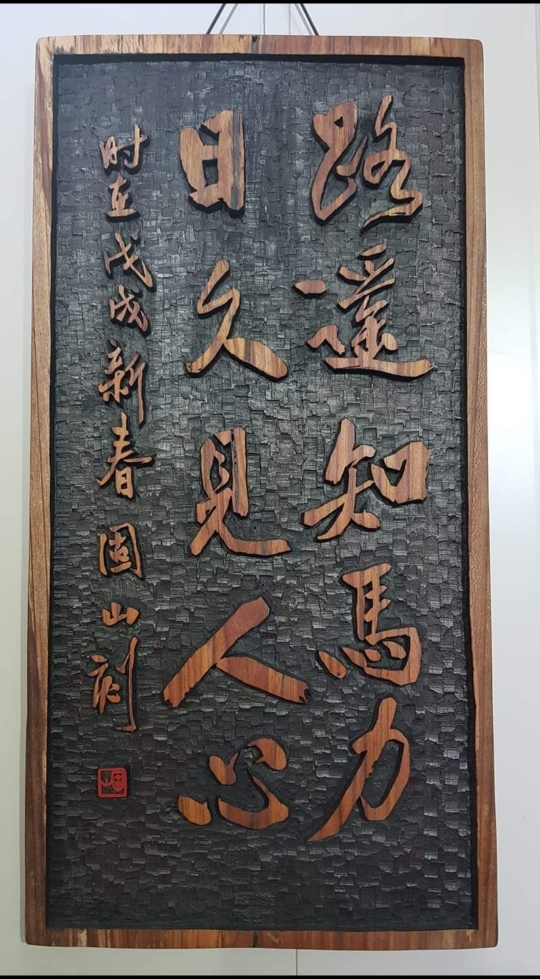 路遥知馬力
日久見人心
时在戊戌新春固山刻